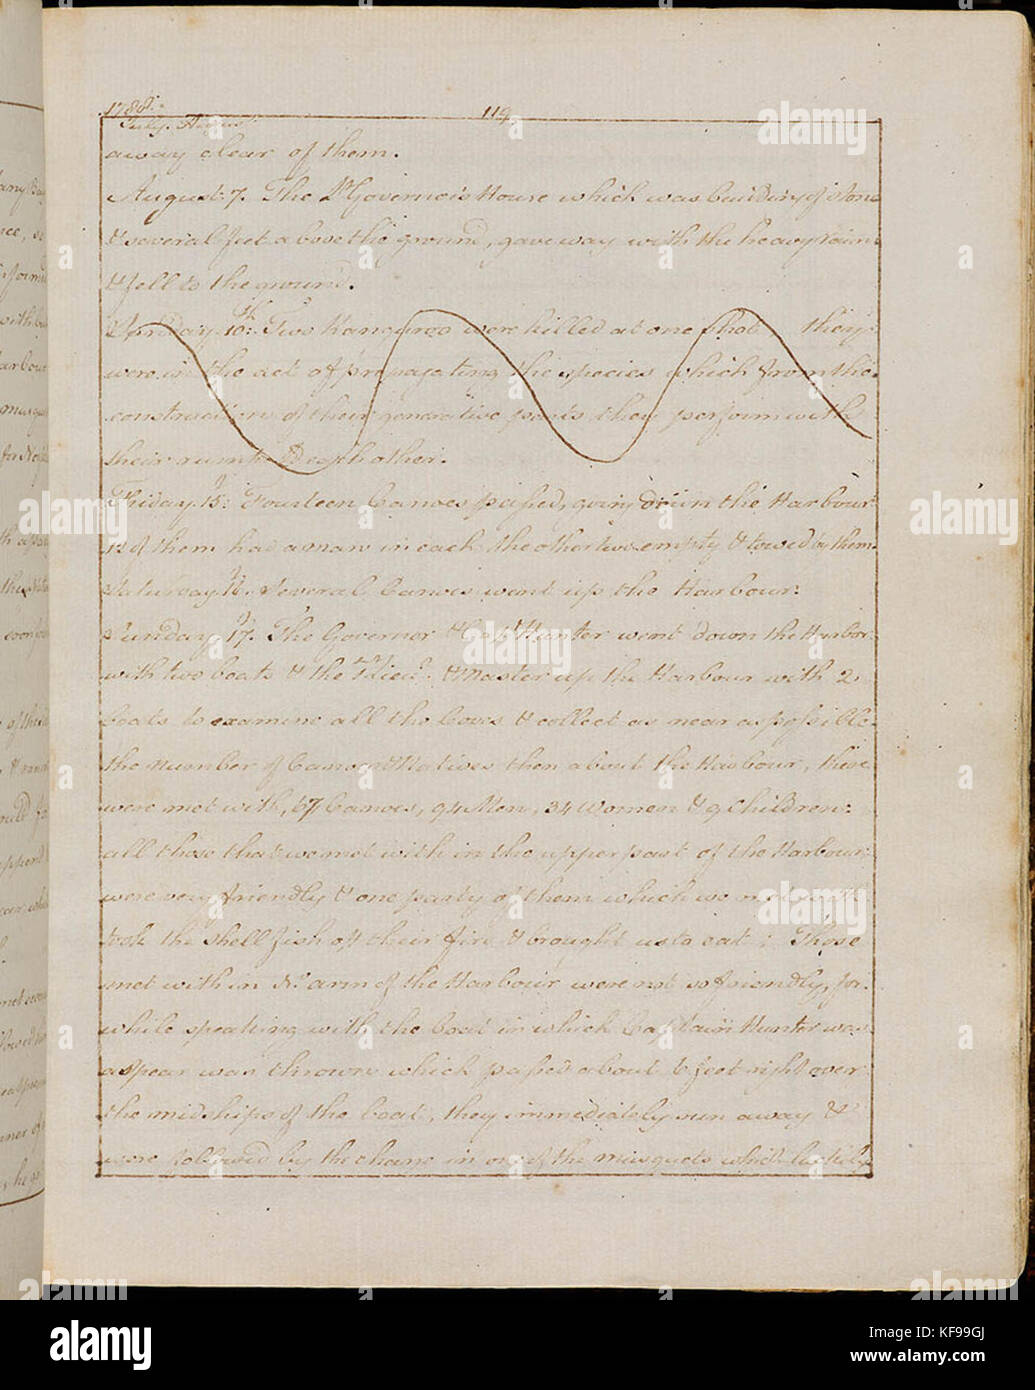 1788. 119
July. August.
away clear of them.
August. 7. The Lt. Governor's House which was building of stone
& several feet above the ground, gave way with the heavy rain
& fell to the ground.
Sunday. 10th. Two Kangaroo were killed at one shot they
were in the act of propagating the species which from the
construction of their generative parts they perform with
their rumps to each other.
Friday. 15: Fourteen Canoes passed, going down the Harbour
12 of them had a man in each the other two empty & towed by them.
Saturday 16. several Canoes went up the Harbour:
Sunday 17. The Governor & Capt. Hunter went down the Harbor
with two boats & the 2nd Lieut. & Master up the Harbour with 2
boats to examine all the Coves & collect as near as possible
the number of Canoes & Natives then about the Harbour, there
were met with, 67 Canoes, 94 Men, 34 Women & 9 Children:
all those that we met with in the upper part of the Harbour:
were very friendly & one party of them which we met with
took the shell fish off their fire & brought us to eat; Those
met with in No. arm of the Harbour were not so friendly, for
while speaking with the boat in which Captain Hunter was
a spear was thrown which passed about 6 feet right over
the midships of the boat, they immediately run away &
were followed by the charge in one of the musquets which luckily
alamy
KF99GJ
www.alamy.com